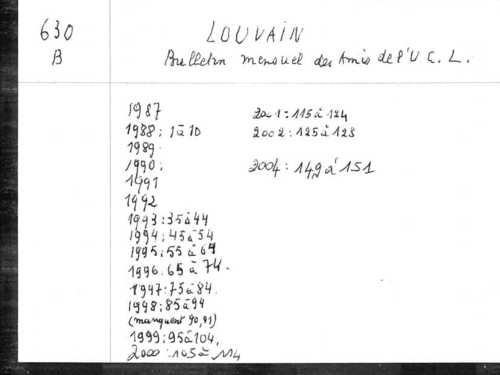 630
B
LOUVAIN
Bulletin mensuel des Amis de l'U C. L.
1987
1988; 1 à 10
1989.
1990;
1991
1992
1993: 35 à 44
1994; 45 à 54
1995; 55 à 64
1996. 65 à 74.
1947: 75 à 84.
1998; 85 à 94
(manquent 90, 91)
1999: 95 à 104,
2000: 105 à 114
2001: 115 à 124
2002: 125 à 128
2004: 149 à 151